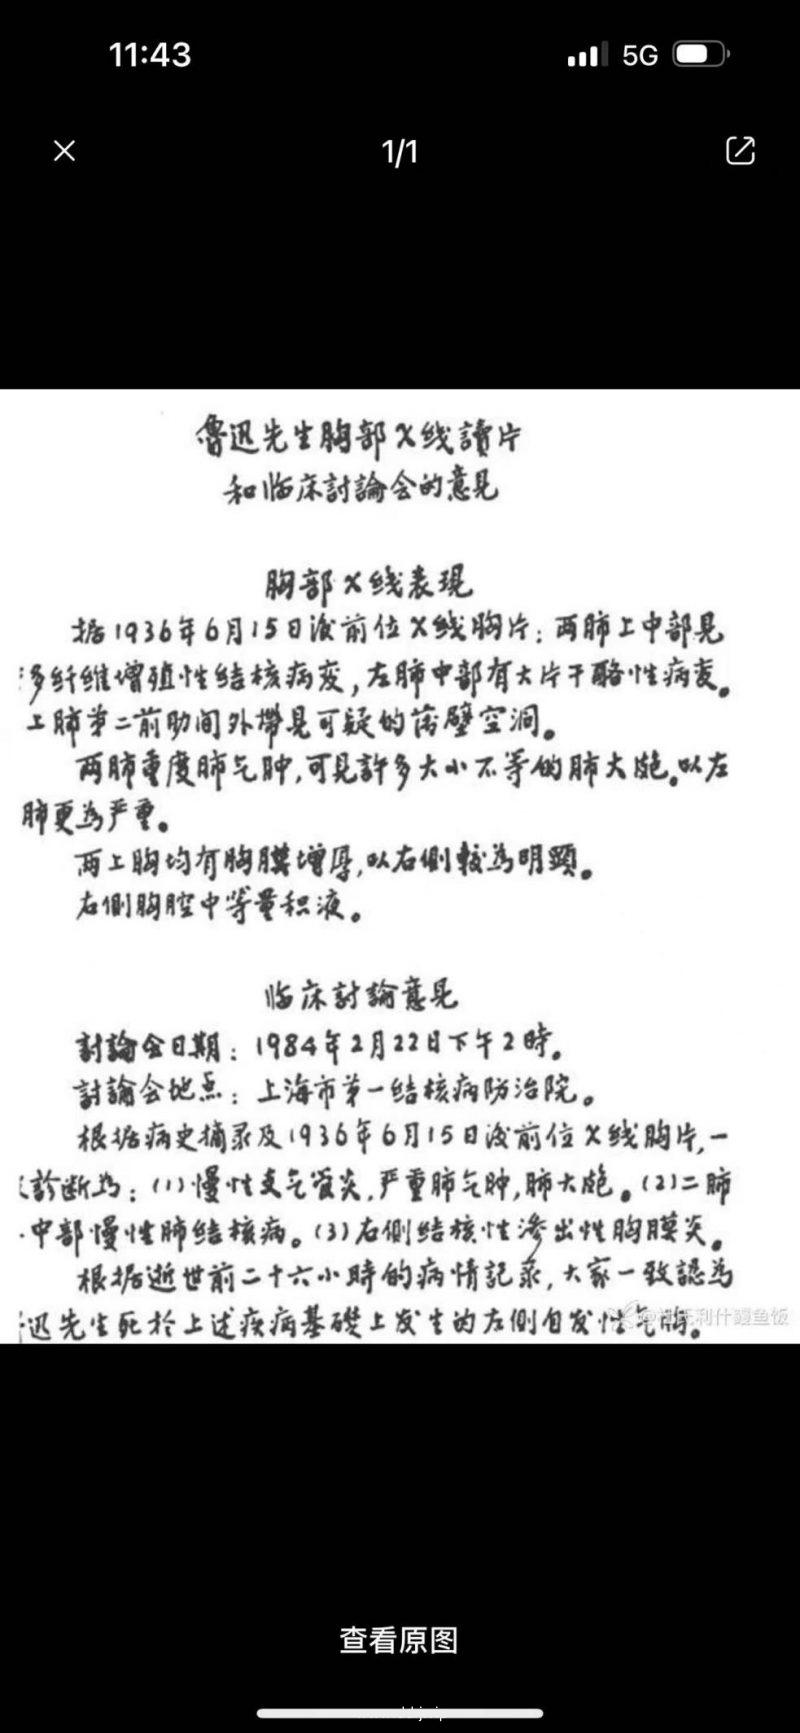 11:43
5G
1/1
魯迅先生胸部X线讀片
和临床討論会的意見
胸部X线表現
据1936年6月15日後前位X线胸片：两肺上中部見
多纤维增殖性结核病变，左肺中部有大片干酪性病変。
上肺第二前肋间外帶見可疑的薄壁空洞。
两肺重度肺气肿，可見許多大小不等的肺大皰。以左
肺更為严重。
两上胸均有胸膜增厚，以右側較為明顯。
右側胸腔中等量积液。
临床討論意見
討論会日期：1984年2月22日下午2時。
討論会地点：上海市第一结核病防治院。
根据病史摘录及1936年6月15日後前位X线胸片，一
診断为：(1)慢性支气管炎，严重肺气肿，肺大皰。(2)二肺
中部慢性肺结核病。(3)右側结核性渗出性胸膜炎。
根据逝世前二十六小時的病情記录，大家一致認為
迅先生死於上述疾病基礎上发生的左側自发性气胸。
氏利什鳗鱼饭
查看原图